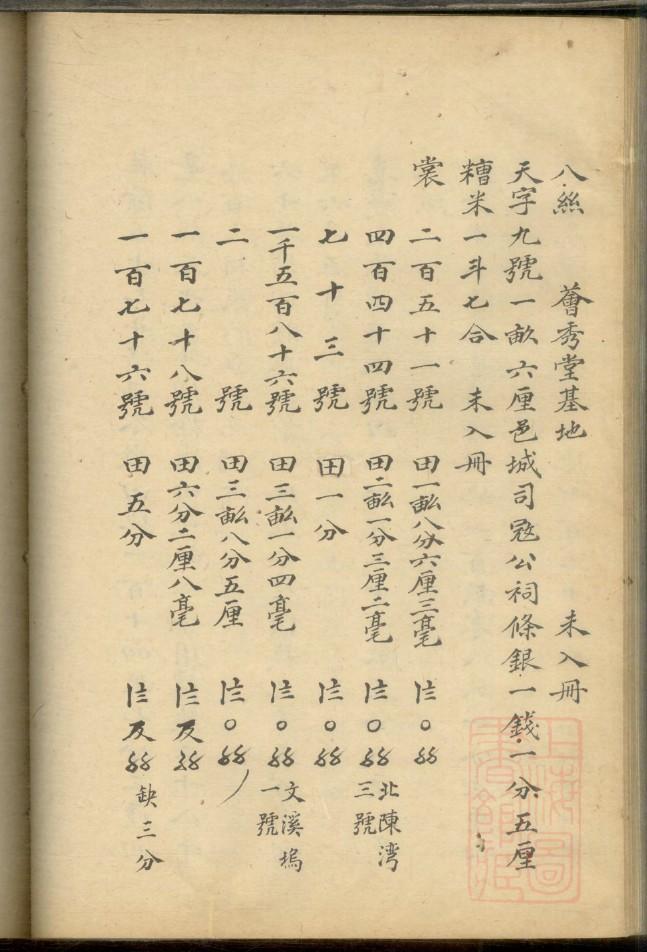 八絲 薈秀堂基地 未入冊
天字九號一畝六厘邑城司寇公祠條銀一錢一分五厘
糟米一斗七合 未入冊
裳
二百五十一號 田一畝八分六厘三毫
四百四十四號 田二畝一分三厘二毫 北陳湾三號
七十三號 田一分
一千五百八十六號 田三畝一分四毫 文溪塢一號
二號 田三畝八分五厘
一百七十八號 田六分二厘八毫
一百七十六號 田五分 缺三分